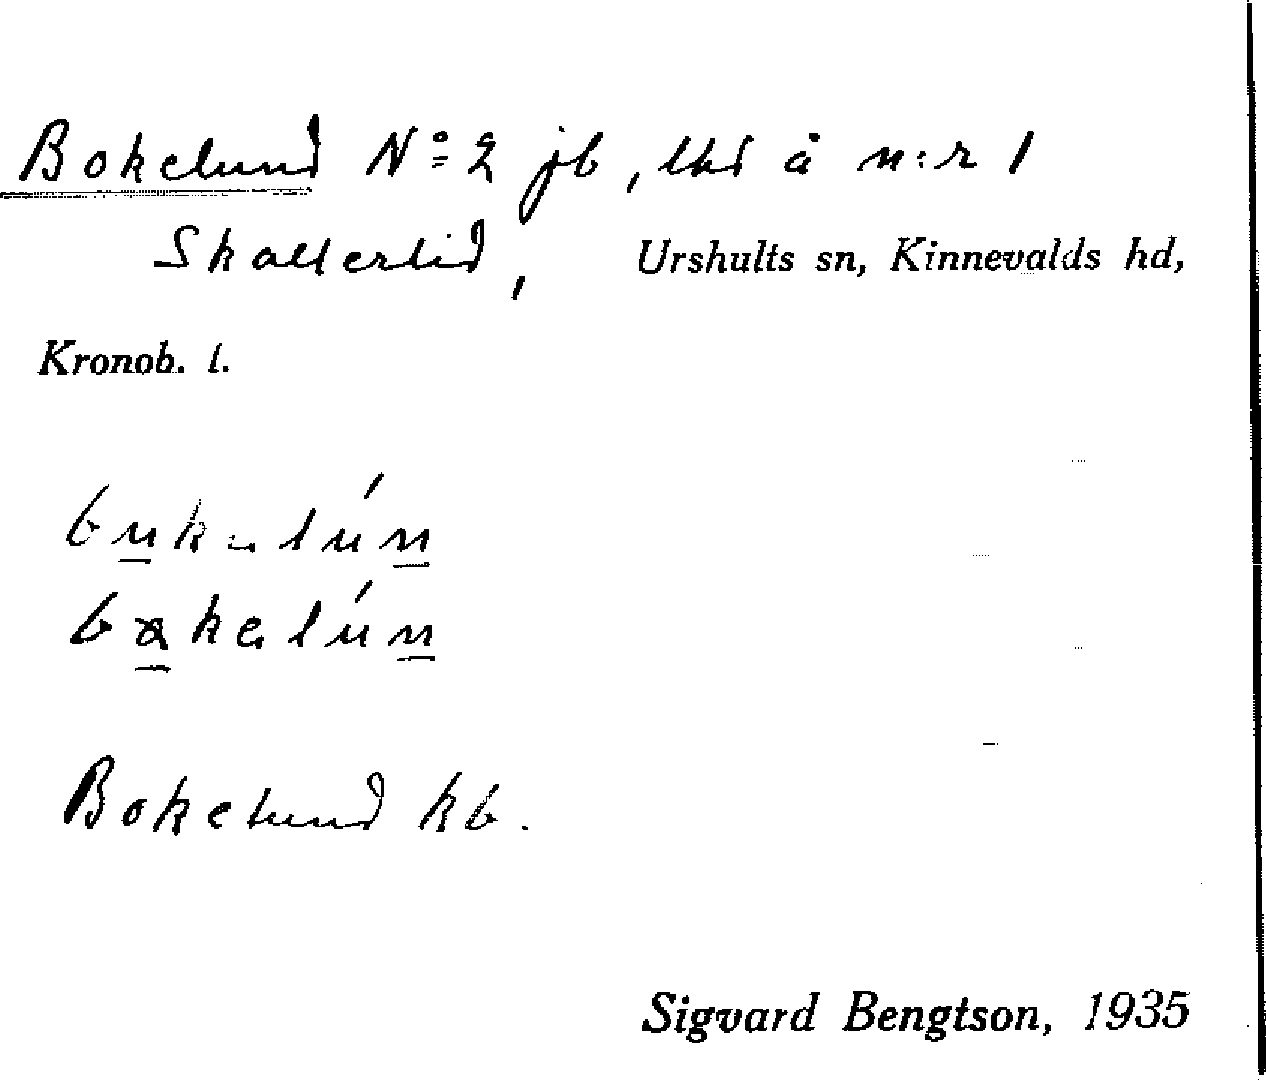 Bokelund No 2 jb, lhd å n:r 1
Skallerlid, Urshults sn, Kinnevalds hd,
Kronob. l.
Bokelund kb.
Sigvard Bengtson, 1935